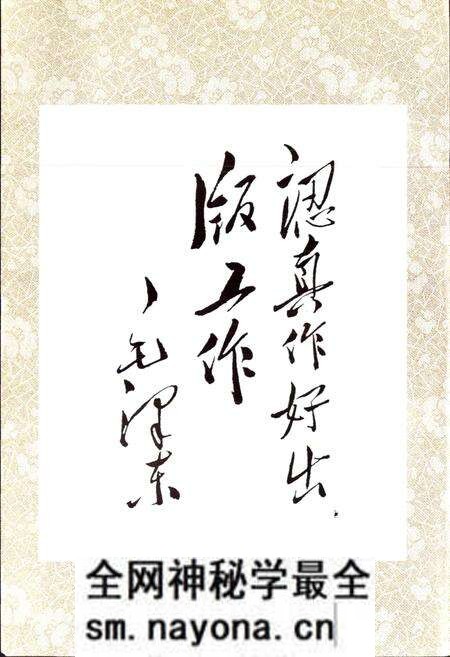 認真作好出
版工作
毛泽东
全网神秘学最全
sm.nayona.cn